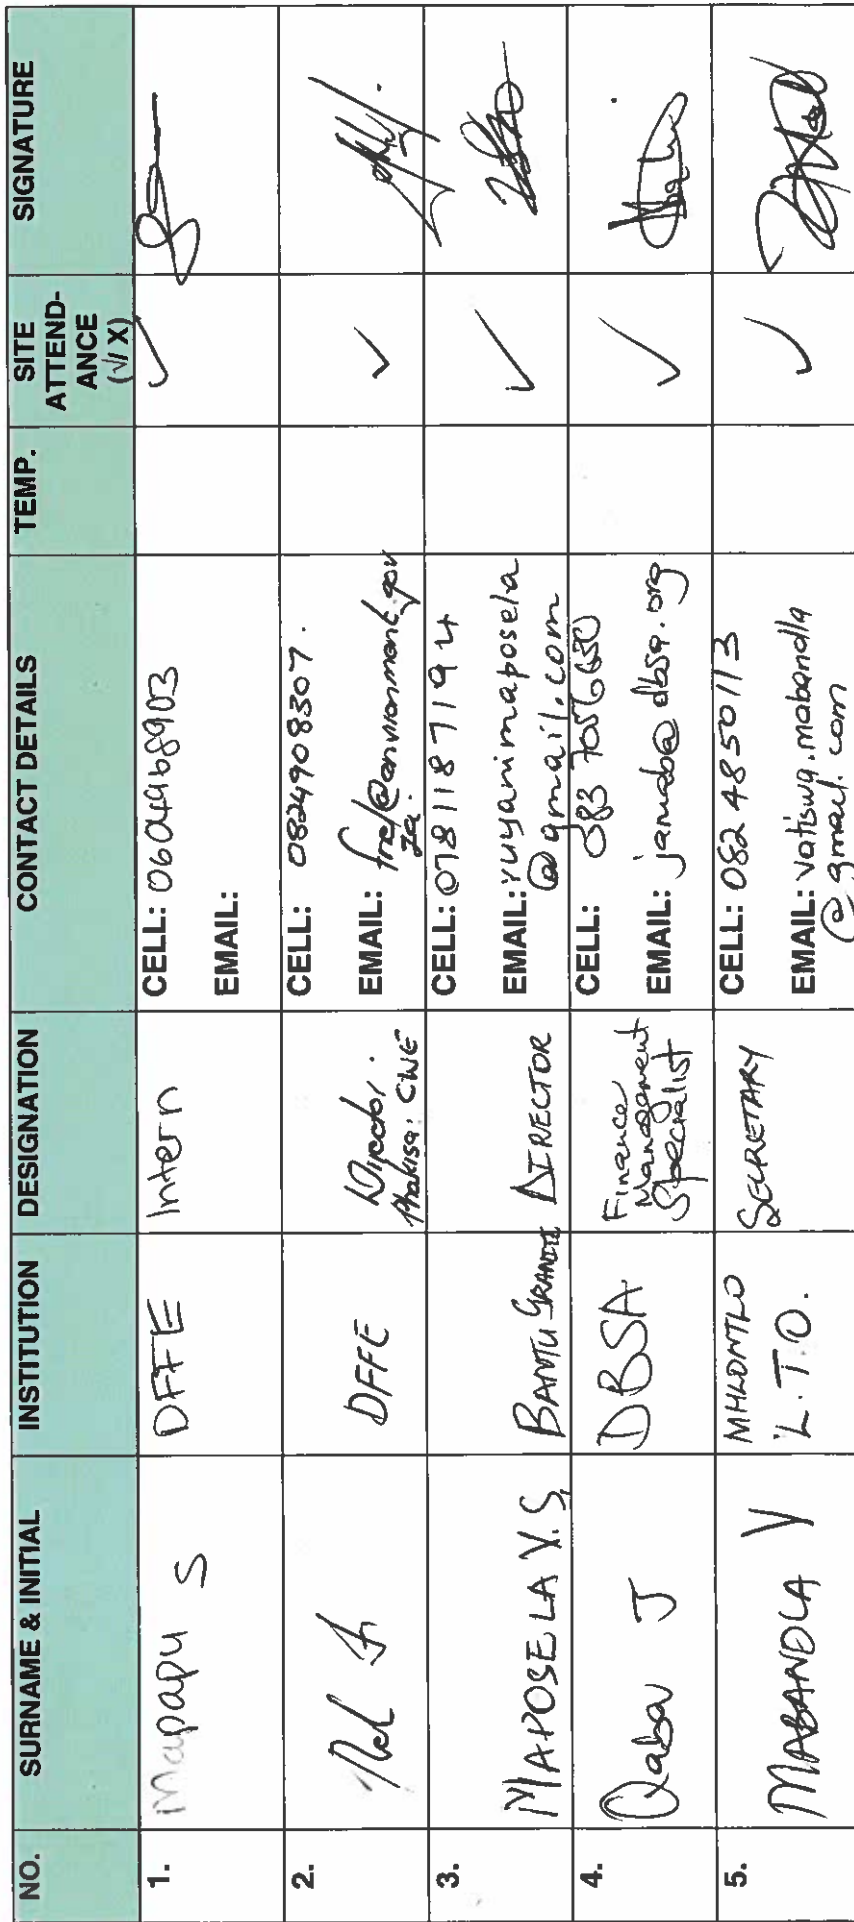 NO.
SURNAME & INITIAL
INSTITUTION
DESIGNATION
CONTACT DETAILS
TEMP.
SITE
ATTEND-
ANCE
(√/X)
SIGNATURE
1.
Mapapu S
DFFE
Intern
CELL: 0604968903
EMAIL:
✓
2.
Nel
DFFE
Director.
Phakisa: CWE
CELL: 0824908307.
EMAIL: fnel@environment.gov
za.
✓
3.
MAPOSELA V.S.
BANTU GRANITE
DIRECTOR
CELL: 0781187194
EMAIL: vuyanimaposela
@gmail.com
✓
4.
Qaba J
DBSA
Finance
Management
Specialist
CELL: 083 7056630
EMAIL: jamab@dbsa.org
✓
5.
MABANDLA V
MHLONTLO
L.T.O.
SECRETARY
CELL: 082 4850113
EMAIL: vatiswa.mabandla
@gmail.com
✓